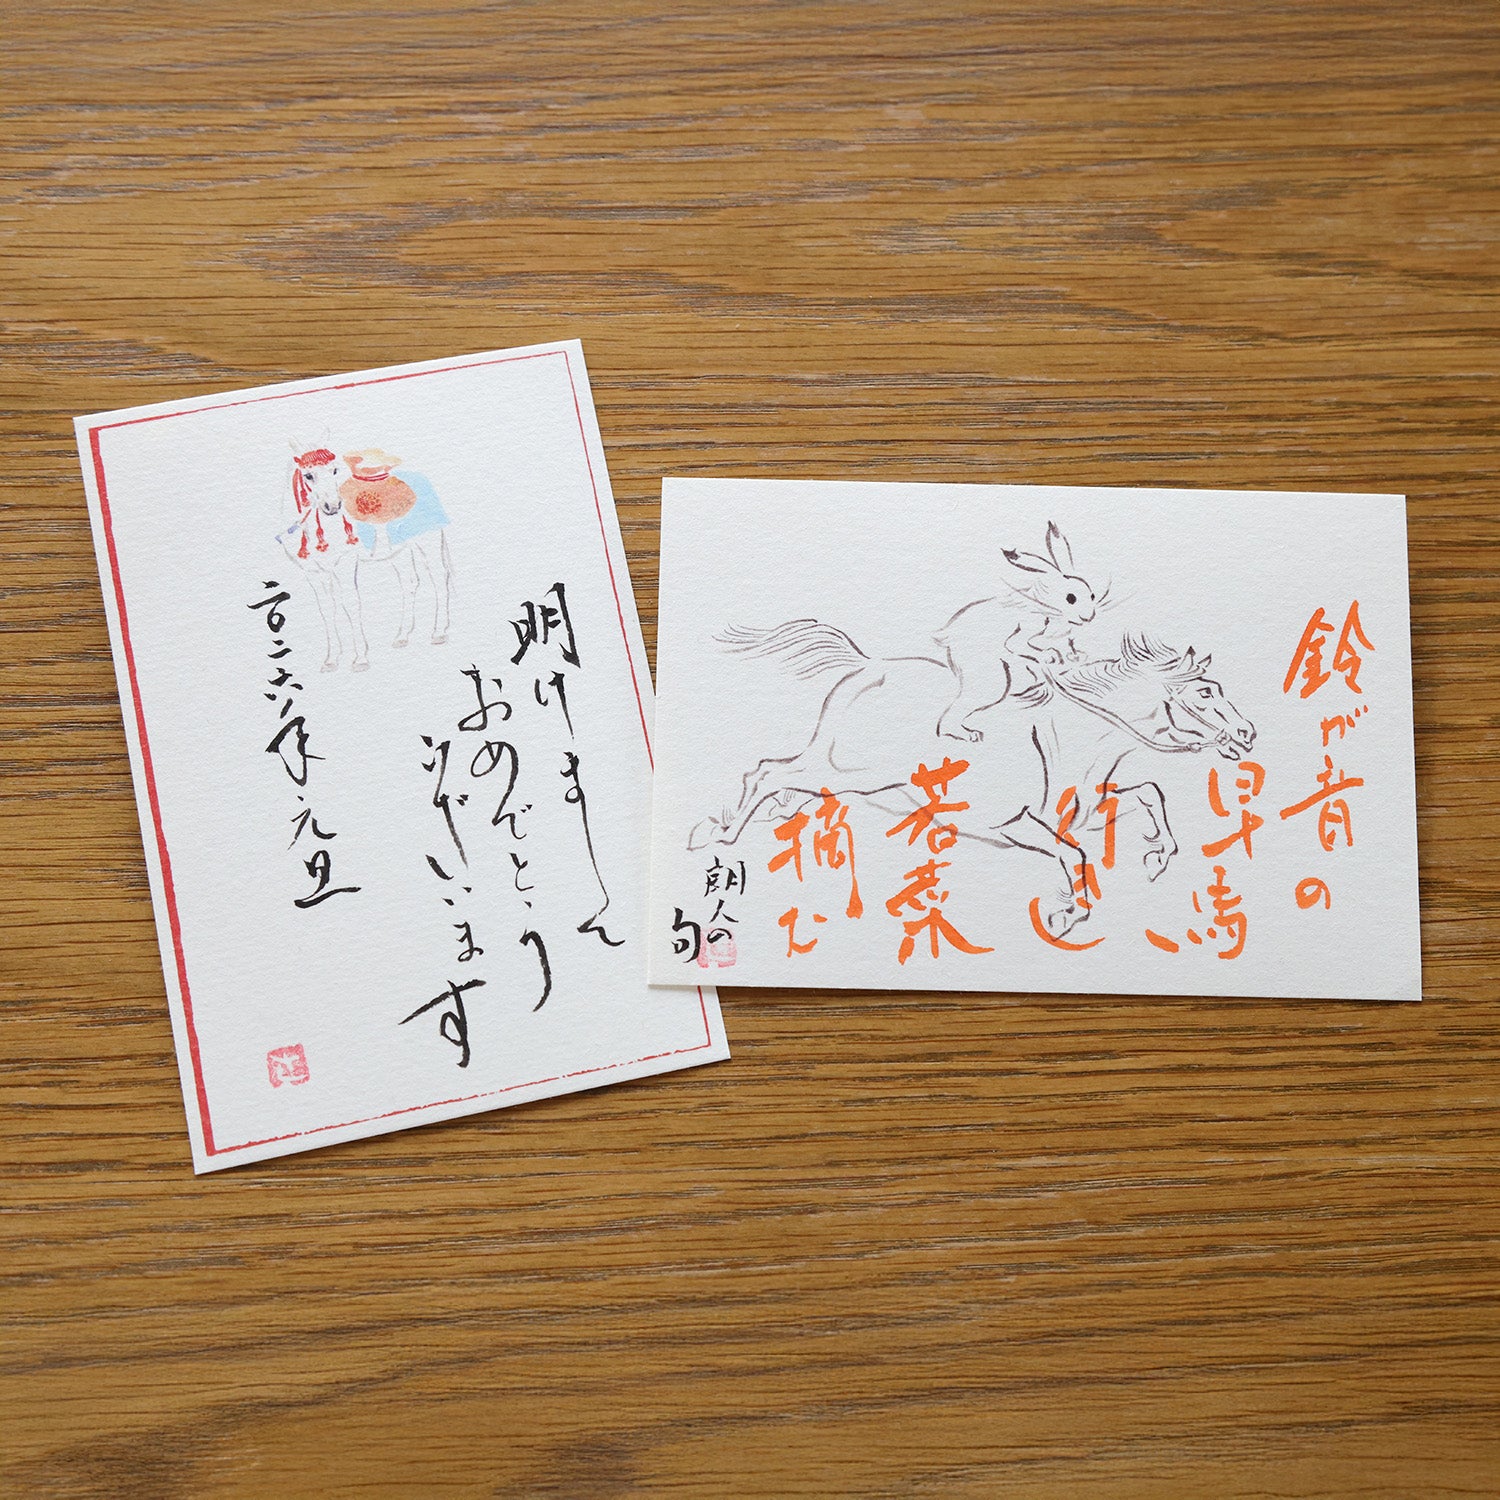 明けまして
おめでとう
ございます
二〇二六年元旦
鈴が音の
早馬
行き
若菜
摘む
朗人の
句